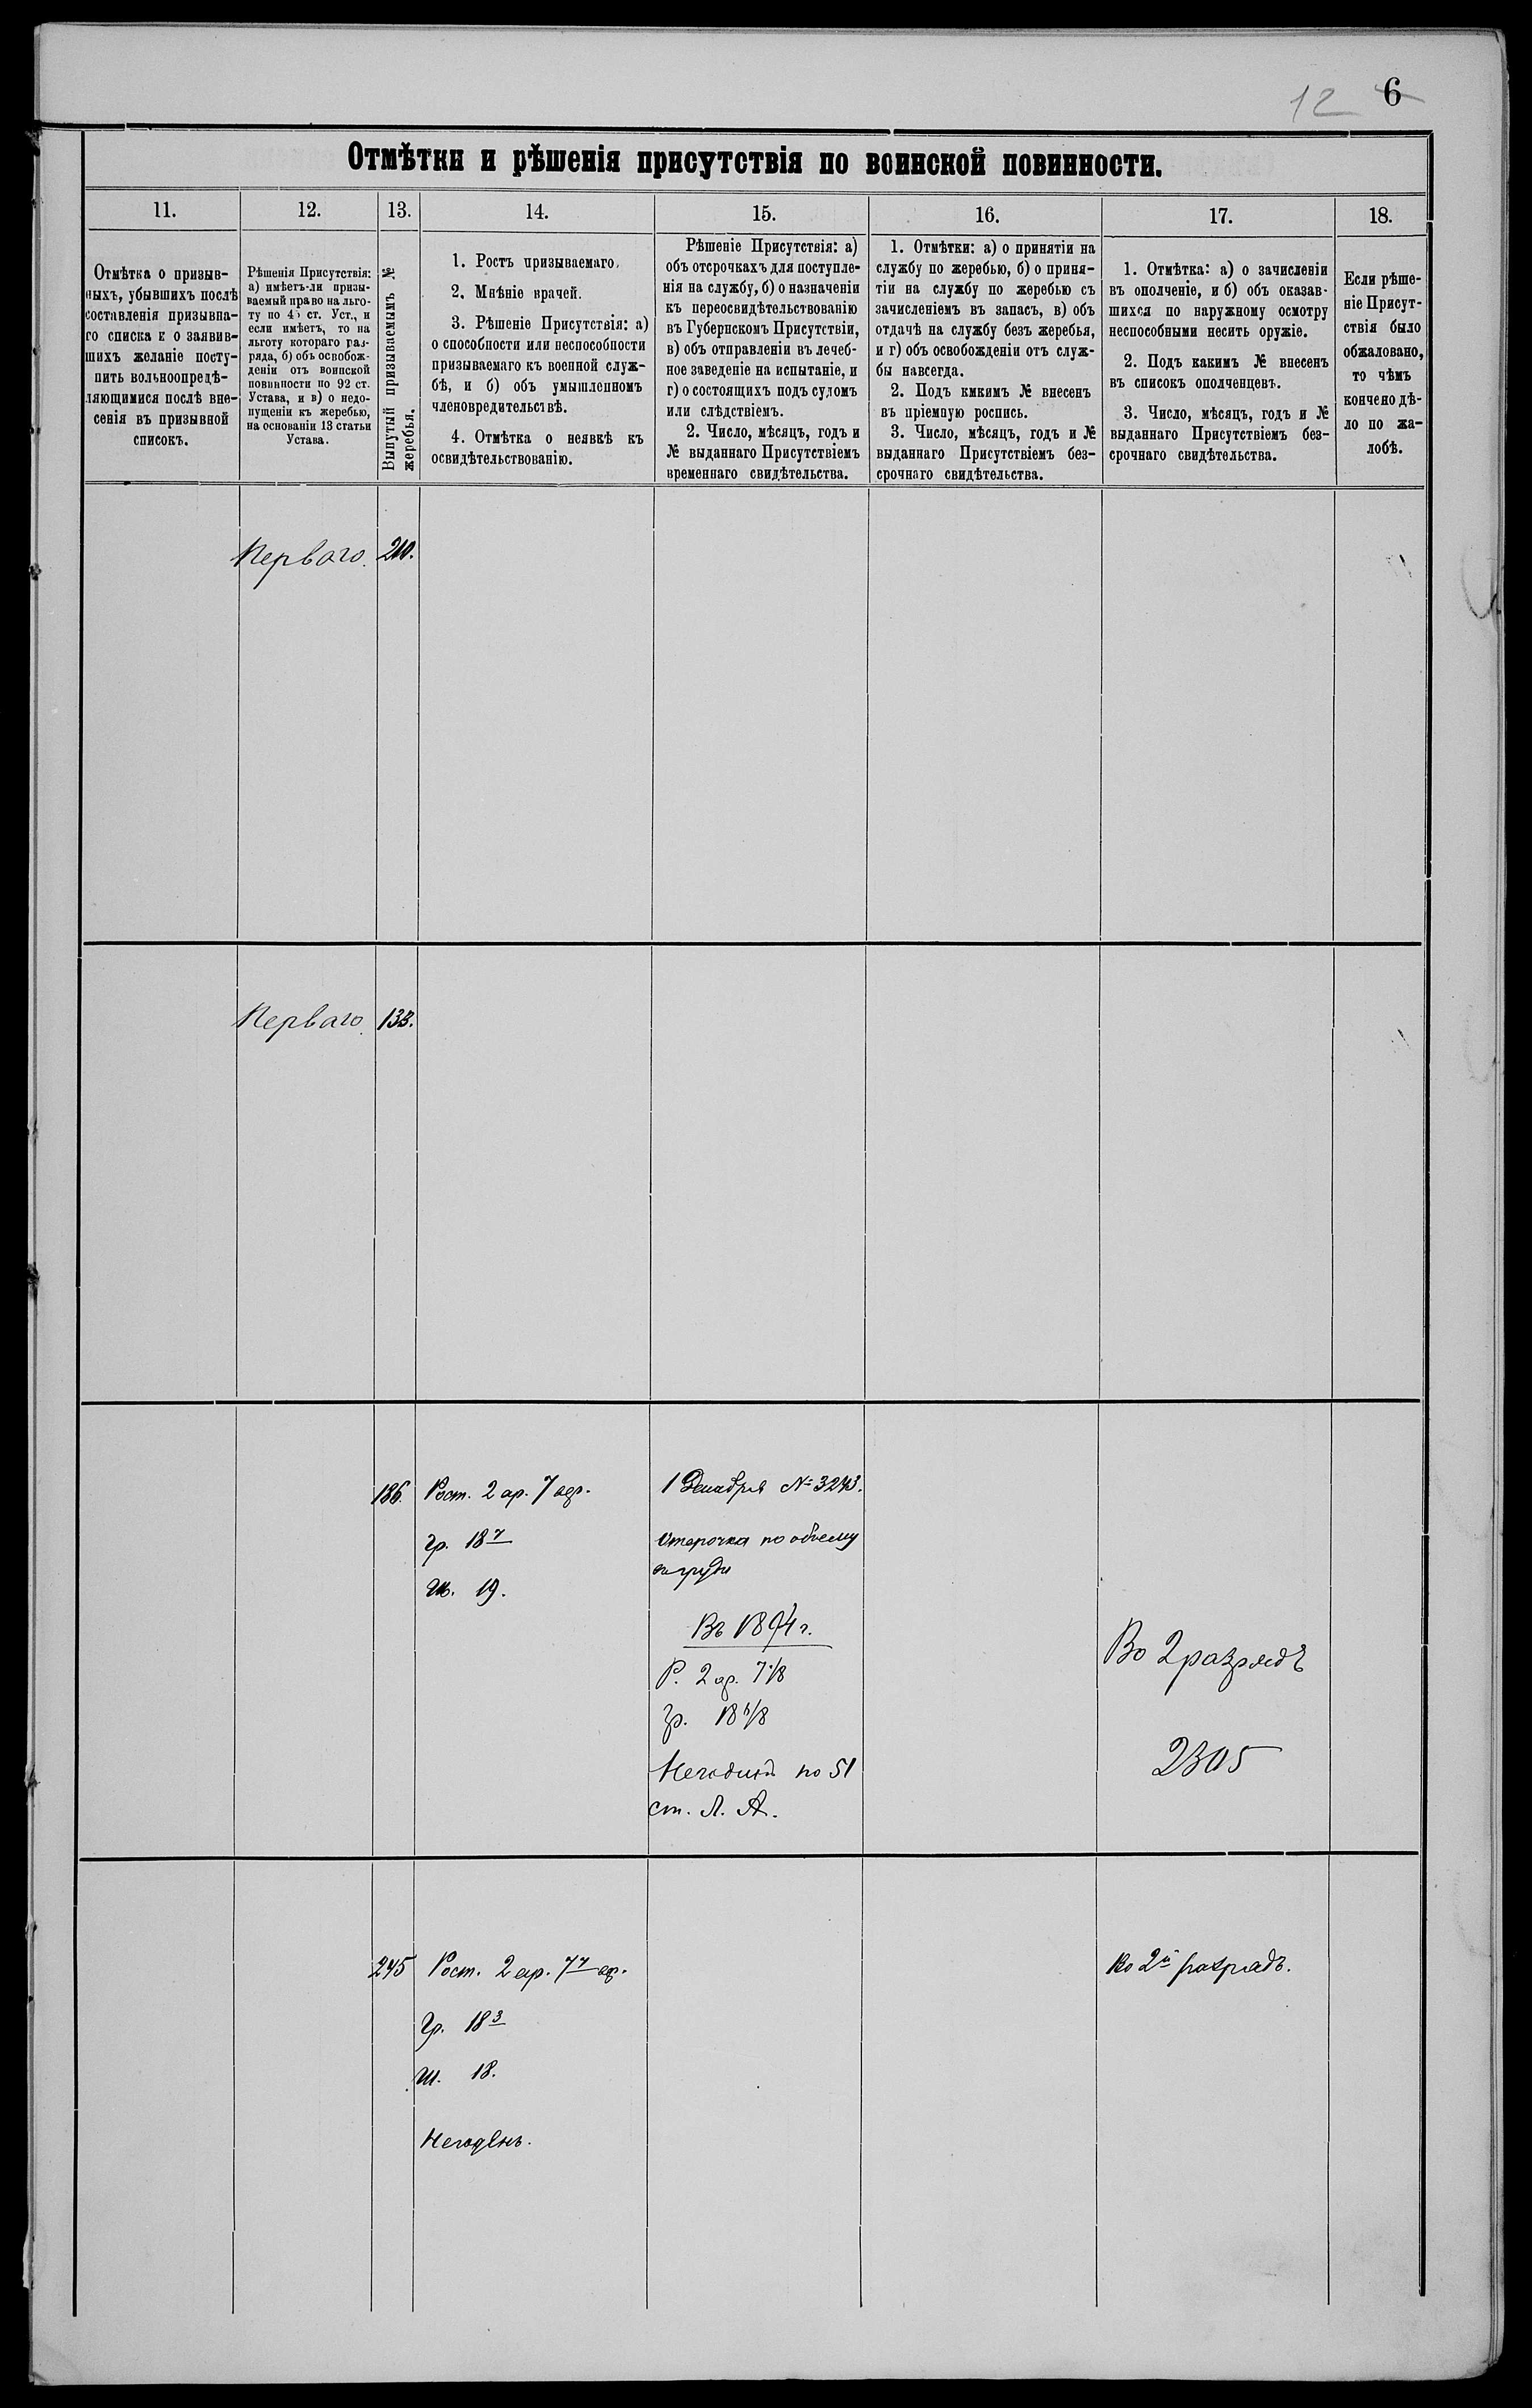 12 6
Отмѣтки и рѣшенія присутствія по воинской повинности.
11.
12.
13.
14.
15.
16.
17.
18.
Отмѣтка о призыв-
ныхъ, убывшихъ послѣ
составленія призывна-
го списка и о заявив-
шихъ желаніе посту-
пить вольноопредѣ-
ляющимися послѣ вне-
сенія въ призывной
списокъ.
Рѣшенія Присутствія:
а) имѣетъ-ли призы-
ваемый право на льго-
ту по 45 ст. Уст., и
если имѣетъ, то на
льготу котораго раз-
ряда, б) объ освобож-
деніи отъ воинской
повинности по 92 ст.
Устава, и в) о недо-
пущеніи къ жеребью,
на основаніи 13 статьи
Устава.
Вынутый призываемымъ №
жеребья.
1. Ростъ призываемаго.
2. Мнѣніе врачей.
3. Рѣшеніе Присутствія: а)
о способности или неспособности
призываемаго къ военной служ-
бѣ, и б) объ умышленномъ
членовредительствѣ.
4. Отмѣтка о неявкѣ къ
освидѣтельствованію.
Рѣшеніе Присутствія: а)
объ отсрочкахъ для поступле-
нія на службу, б) о назначеніи
къ переосвидѣтельствованію
въ Губернскомъ Присутствіи,
в) объ отправленіи въ лечеб-
ное заведеніе на испытаніе, и
г) о состоящихъ подъ судомъ
или слѣдствіемъ.
2. Число, мѣсяцъ, годъ и
№ выданнаго Присутствіемъ
временнаго свидѣтельства.
1. Отмѣтки: а) о принятіи на
службу по жеребью, б) о приня-
тіи на службу по жеребью съ
зачисленіемъ въ запасъ, в) объ
отдачѣ на службу безъ жеребья,
и г) объ освобожденіи отъ служ-
бы навсегда.
2. Подъ кмкимъ № внесенъ
въ пріемную роспись.
3. Число, мѣсяцъ, годъ и №
выданнаго Присутствіемъ без-
срочнаго свидѣтельства.
1. Отмѣтка: а) о зачисленіи
въ ополченіе, и б) объ оказав-
шихся по наружному осмотру
неспособными несить оружіе.
2. Подъ какимъ № внесенъ
въ списокъ ополченцевъ.
3. Число, мѣсяцъ, годъ и №
выданнаго Присутствіемъ без-
срочнаго свидѣтельства.
Если рѣше-
ніе Присут-
ствія было
обжаловано,
то чѣмъ
кончено дѣ-
ло по жа-
лобѣ.
Перваго. 210.
Перваго. 133.
186. Рост. 2 ар. 7 вер.
Гр. 18 7
19.
1 Декабря № 3243.
Отсрочка по объему
груди
Въ 1894 г.
Р. 2 ар. 7 1/8
гр. 18 /8
Негодный по 51
ст. Л. А.
Во 2 разрядъ
2305
245 Рост. 2 ар. 7 7 вер.
Гр. 18 3
Ш. 18.
Негоденъ.
Во 2й разрядъ.